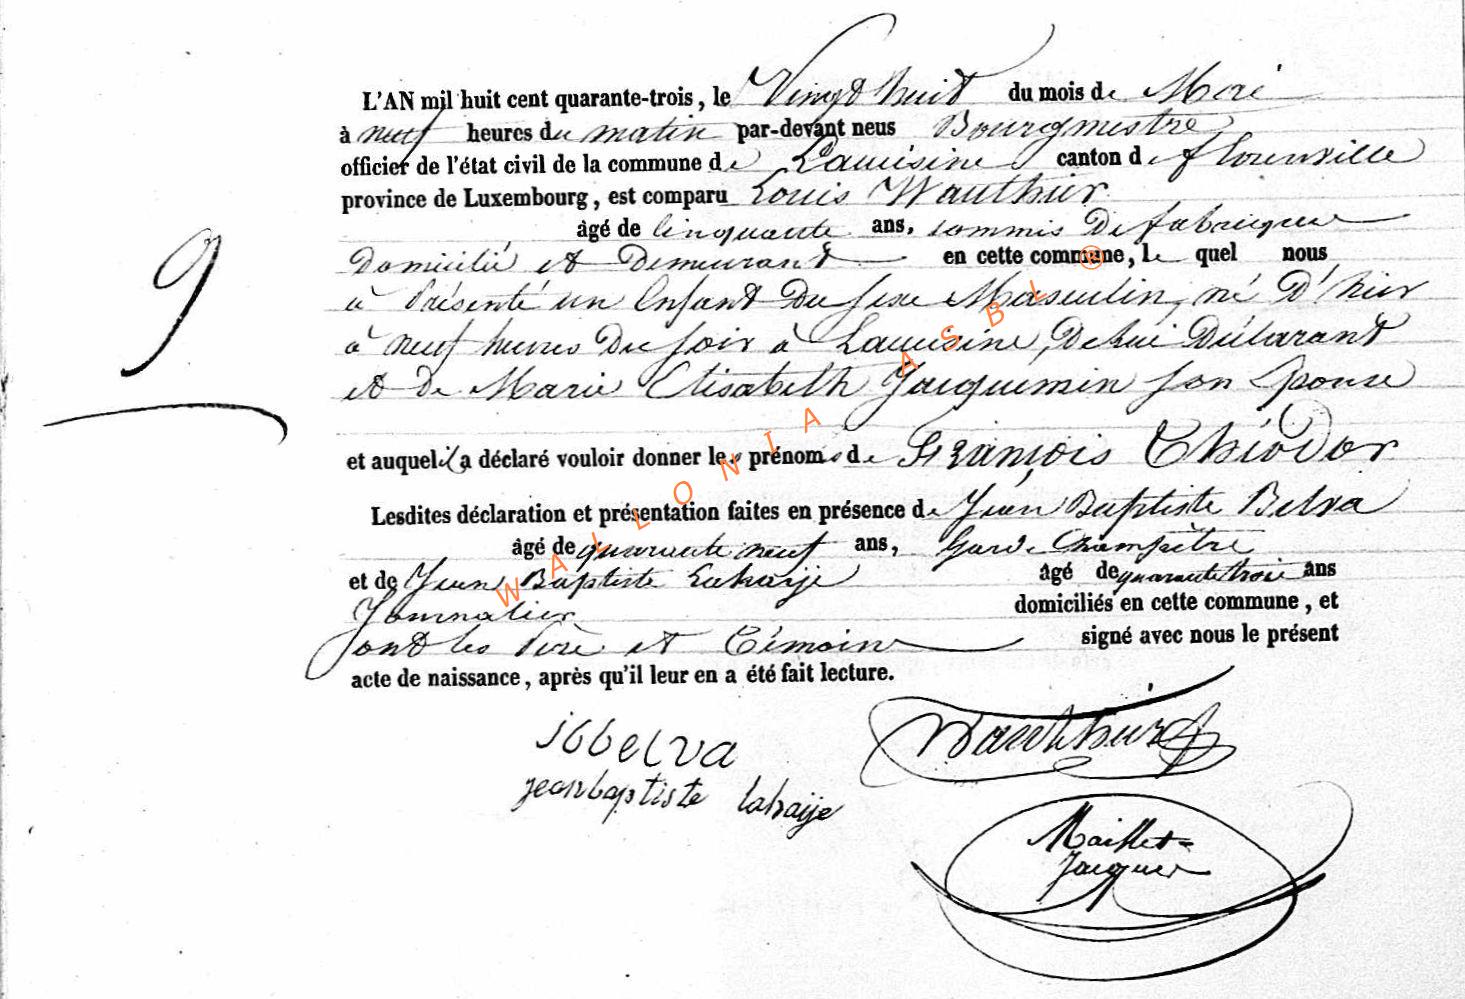 L'AN mil huit cent quarante-trois, le Vingt huit du mois de Mai
à neuf heures du matin par-devant nous Bourgmestre
officier de l'état civil de la commune de Lacuisine canton de florenville
province de Luxembourg, est comparu Louis Wauthier
âgé de Cinquante ans, commis De fabrique
Domicilié et Demeurant en cette commune, le quel nous
à Présenté un Enfant Du sexe Masculin, né D'hier
à neuf heures Du soir à Lacuisine, De lui Déclarant
et De Marie Elisabeth Jacquemin son Epouse
et auquel il a déclaré vouloir donner les prénoms de François Théodor
Lesdites déclaration et présentation faites en présence de Jean Baptiste Belva
âgé de quarante neuf ans, Garde Champêtre
et de Jean Baptiste Lahaije âgé de quarante trois ans
Journalier domiciliés en cette commune, et
ont les Père et Témoin signé avec nous le présent
acte de naissance, après qu'il leur en a été fait lecture.
9
jbbelva
jeanbaptiste lahaije
Wauthier
Maillet-
Jacques
WALLONIA ASBL ®